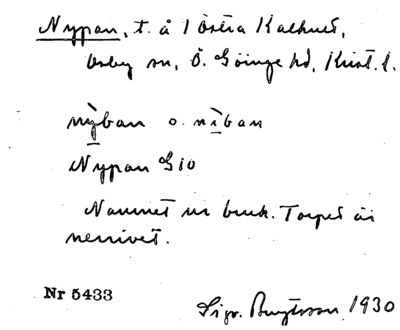 Nypan, t. å 1 Östra Kalhult,
Osby sn, Ö. Göinge hd, Krist. l.
nỳban o. nìban
Nypan Gio
Namnet ur bruk. Torpet är
nerrivet.
Nr 5433
Sigv. Bengtsson 1930